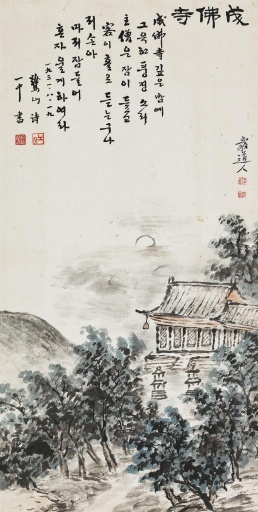 成佛寺
成佛寺 깊은 밤에
그윽한 풍경 소리
主僧은 잠이 들고
客이 홀로 듣는구나
저 손아
마저 잠들어
혼자 울게 하여라
一九三一·八·一九
鷺山 詩
一中 書
道人